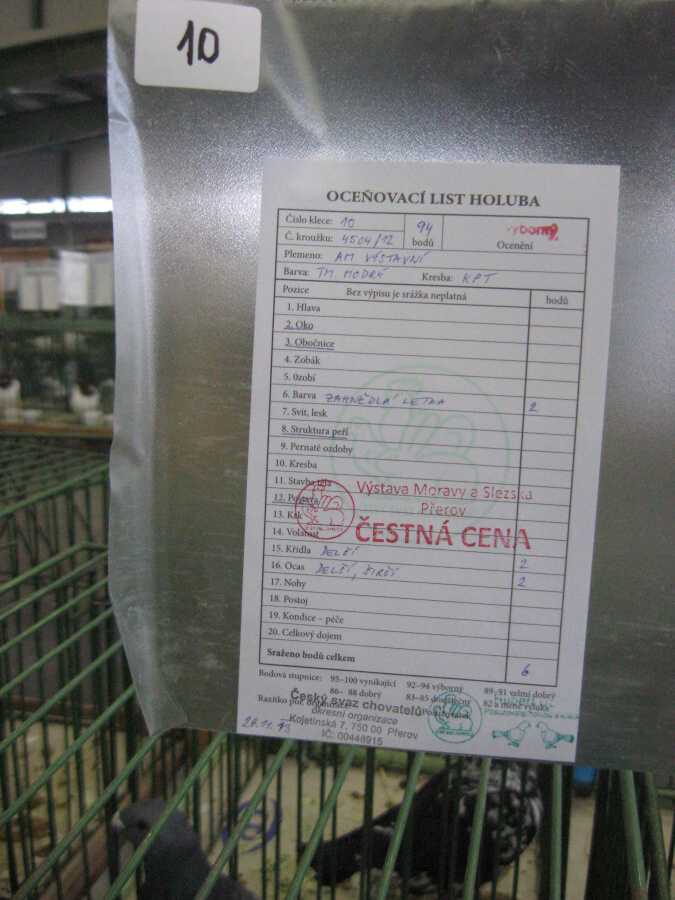 10
OCEŇOVACÍ LIST HOLUBA
Číslo klece: 10
94 bodů
výborný
Ocenění
Č. kroužku: 4504/12
Plemeno: AM VÝSTAVNÍ
Barva: TM. MODRÝ Kresba: KPT
Pozice Bez výpisu je srážka neplatná bodů
1. Hlava
2. Oko
3. Obočnice
4. Zobák
5. Ozobí
6. Barva ZAHNĚDLÁ LETKA 2
7. Svit, lesk
8. Struktura peří
9. Pernaté ozdoby
10. Kresba
11. Stavba těla
Výstava Moravy a Slezska
12.
Přerov
13. Krk
ČESTNÁ CENA
14. Volatost
15. Křídla DELŠÍ 2
16. Ocas DELŠÍ, ŠIRŠÍ 2
17. Nohy
18. Postoj
19. Kondice – péče
20. Celkový dojem
Sraženo bodů celkem 6
Bodová stupnice: 95–100 vynikající 92–94 výborný 89–91 velmi dobrý
86– 88 dobrý 83–85 82 a méně výluka
Razítko poř. organizace
Český svaz chovatelů
okresní organizace
Kojetínská 7, 750 00 Přerov
IČ: 00448915